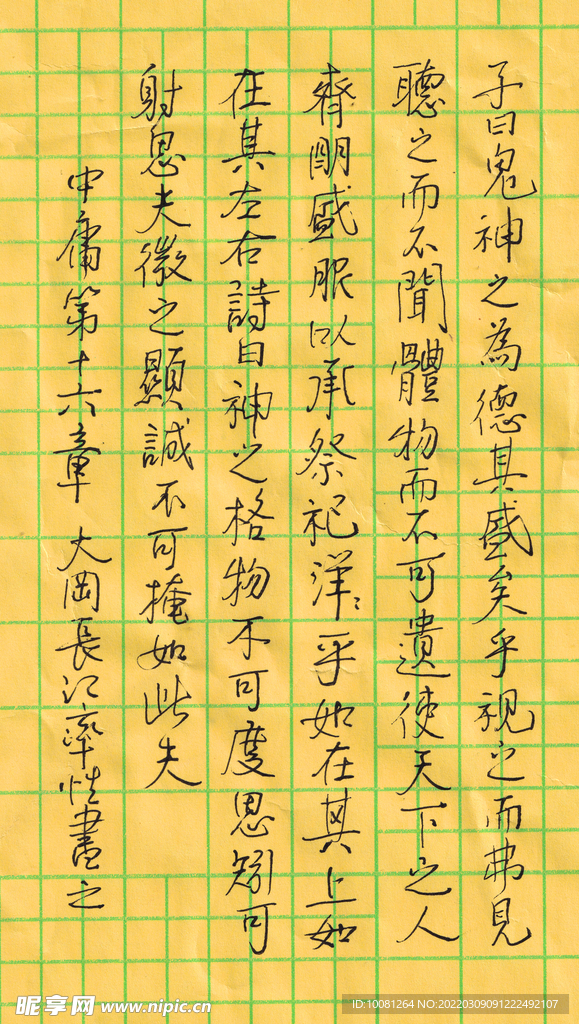 子曰鬼神之為德其盛矣乎視之而弗見
聽之而不聞體物而不可遺使天下之人
齊明盛服以承祭祀洋々乎如在其上如
在其左右詩曰神之格物不可度思矧可
射思夫微之顯誠不可掩如此夫
中庸第十六章 大岡長江率性書之
昵享网 www.nipic.cn
ID:10081264 NO:20220309091222492107